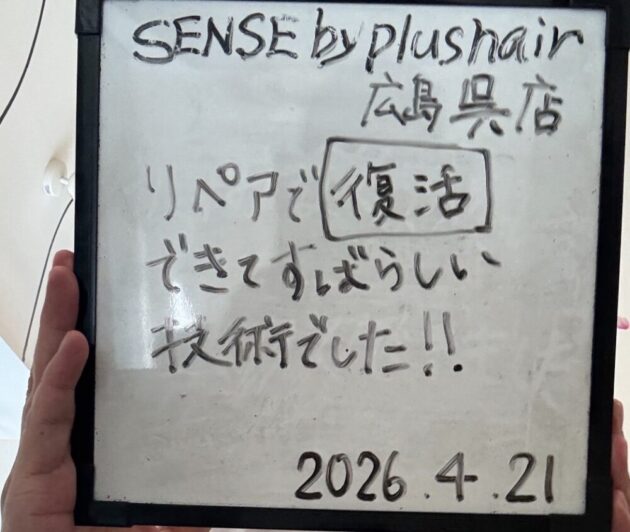 SENSE by plushair
広島呉店
リペアで復活
できてすばらしい
技術でした!!
2026.4.21